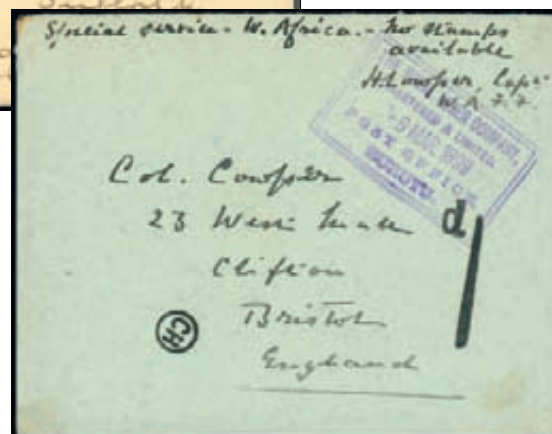 Special service - W. Africa. - No stamps
available
H. Cowper, Capt
W.A.F.F.
COMPANY,
& LIMITED.
AUG 1899
POST OFFICE
Col. Cowper
23 West Mall
Clifton
Bristol
England
d
1
CH